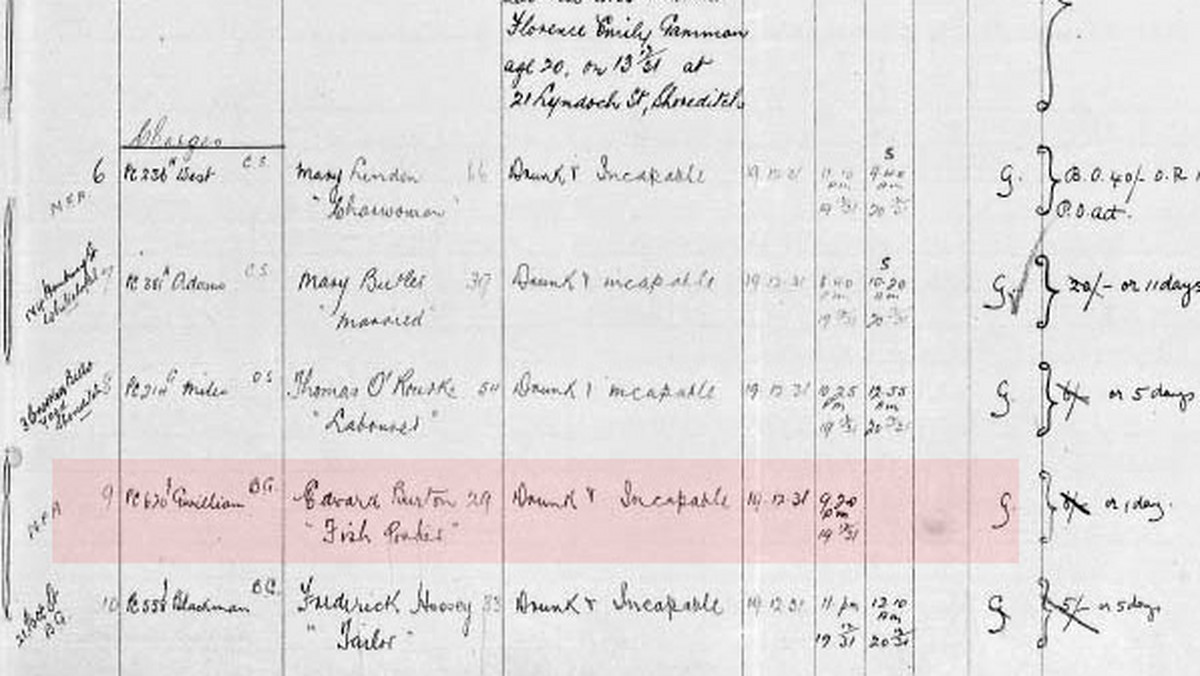 Florence Emily Gammon
age 20, on 13 12/31 at
21 Lyndoch St, Shoreditch
Charges
N.F.A. 6 PC 236 H West C.S. Mary Linden 66 Drunk & Incapable 19.12.31 pm 19 12/31 S 9.40 am 20 12/31 G. B.O. 40/- O.R 1
"Charwoman" P.O. act.
Whitechapel 7 PC 381 H Adams C.S. Mary Butler 37 Drunk & incapable 19.12.31 8.40 pm 19 12/31 S 10.20 am 20 12/31 G. 20/- or 11 days
"Married"
Shoreditch 8 PC 214 G Miles O.S. Thomas O'Rourke 54 Drunk & incapable 19.12.31 10.25 pm 19 12/31 12.55 am 20 12/31 G. or 5 days
"Labourer"
N.F.A 9 PC 670 J Gwillian B.G. Edward Burton 29 Drunk & Incapable 19.12.31 9.20 pm 19 12/31 G. or 1 day.
"Fish Porter"
B.G. 10 PC 558 J Blackman B.G. Frederick Hoosey 33 Drunk & Incapable 19.12.31 11 pm 19 12/31 12.10 am 20 12/31 G. 5/- or 5 days
"Tailor"